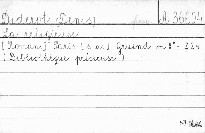 Diderot (Denis)
La religieuse
[Roman] Paris [s.a.] Gründ in 8° - 224
(Bibliothèque précieuse)